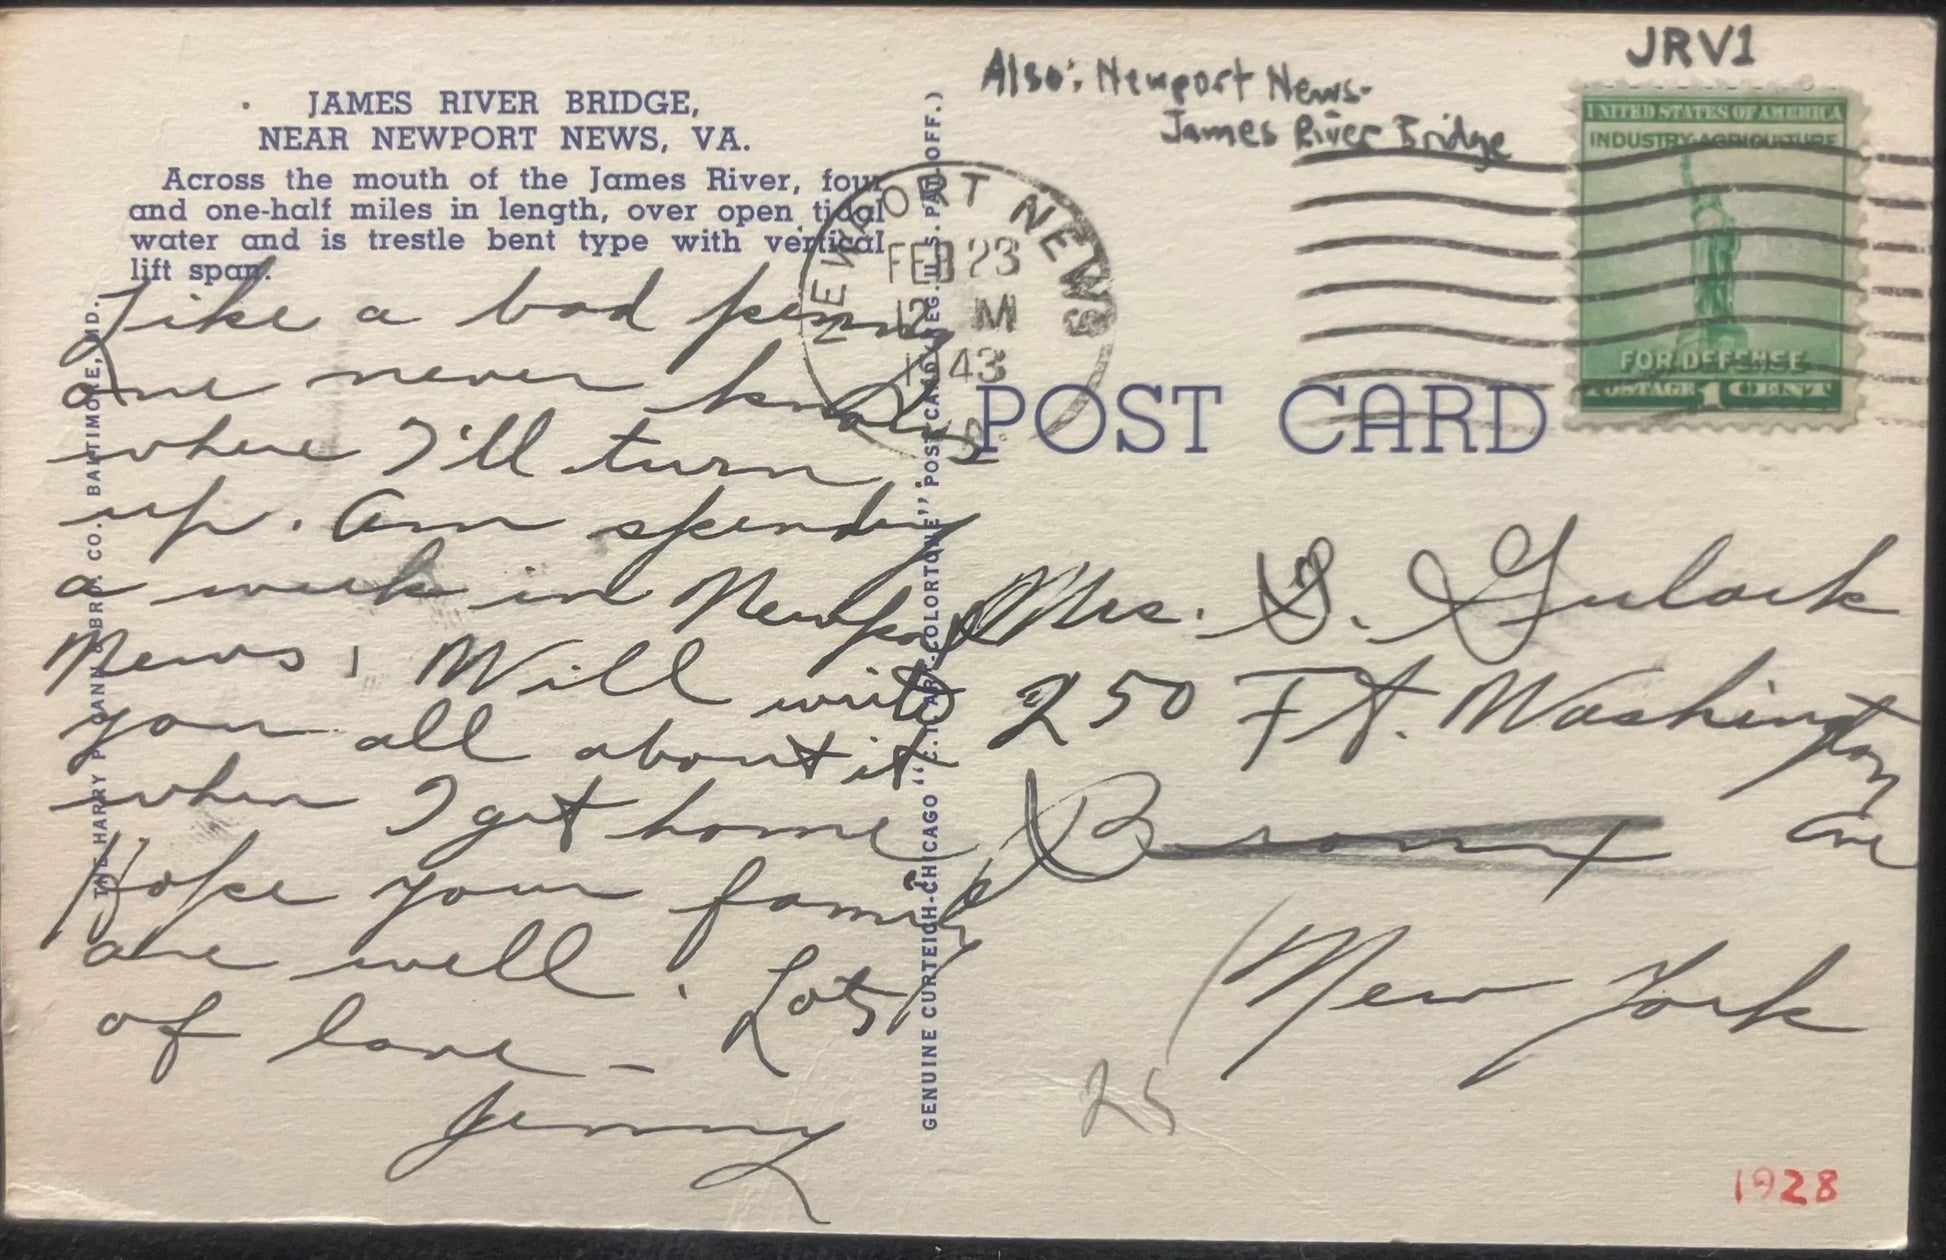 JAMES RIVER BRIDGE,
NEAR NEWPORT NEWS, VA.
Across the mouth of the James River, four
and one-half miles in length, over open tidal
water and is trestle bent type with vertical
lift span.
Like a bad penny
one never knows
where I'll turn
up. Am spending
a week in Newport
News. Will write
you all about it
when I get home.
Hope your family
are well. Lots
of love –
Jenny
THE HARRY P. CANN & BRO. CO. BALTIMORE, MD.
GENUINE CURTEICH-CHICAGO "C.T. ART-COLORTONE" POST CARD (REG. U.S. PAT. OFF.)
Also: Newport News-
James River Bridge
JRV1
NEWPORT NEWS
FEB 23
12 M
1943
VA.
UNITED STATES OF AMERICA
INDUSTRY AGRICULTURE
FOR DEFENSE
POSTAGE 1 CENT
POST CARD
Mrs. S. Gulack
250 Ft. Washington
Ave
Bronx
New York
25
1928